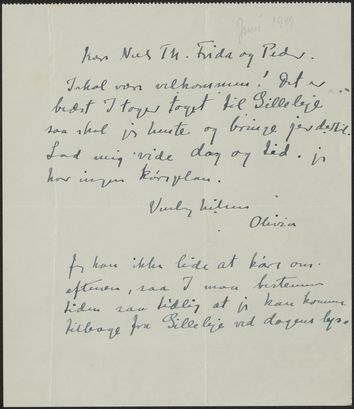 Juni 1949
Kære Niels Th. Frida og Peder.
I skal være velkommen! Det er
bedst I tager toget til Gilleleje
saa skal jeg hente og bringe jer dertil.
Lad mig vide dag og tid. jeg
har ingen køreplan.
Venlig hilsen
Olivia
Jeg kan ikke lide at køre om
aftenen, saa I maa bestemme
tiden saa tidlig at jeg kan komme
tilbage fra Gilleleje ved dagens lys.